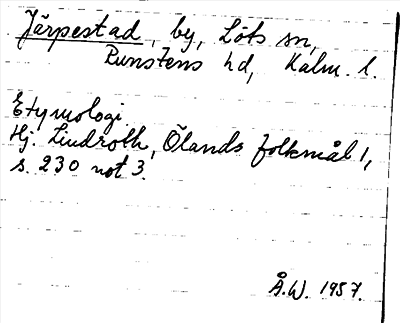 Järpestad, by, Löts sn,
Runstens hd, Kalm. l.
Etymologi
Hj. Lindroth, Ölands folkmål 1,
s. 230 not 3.
Å.W. 1957.